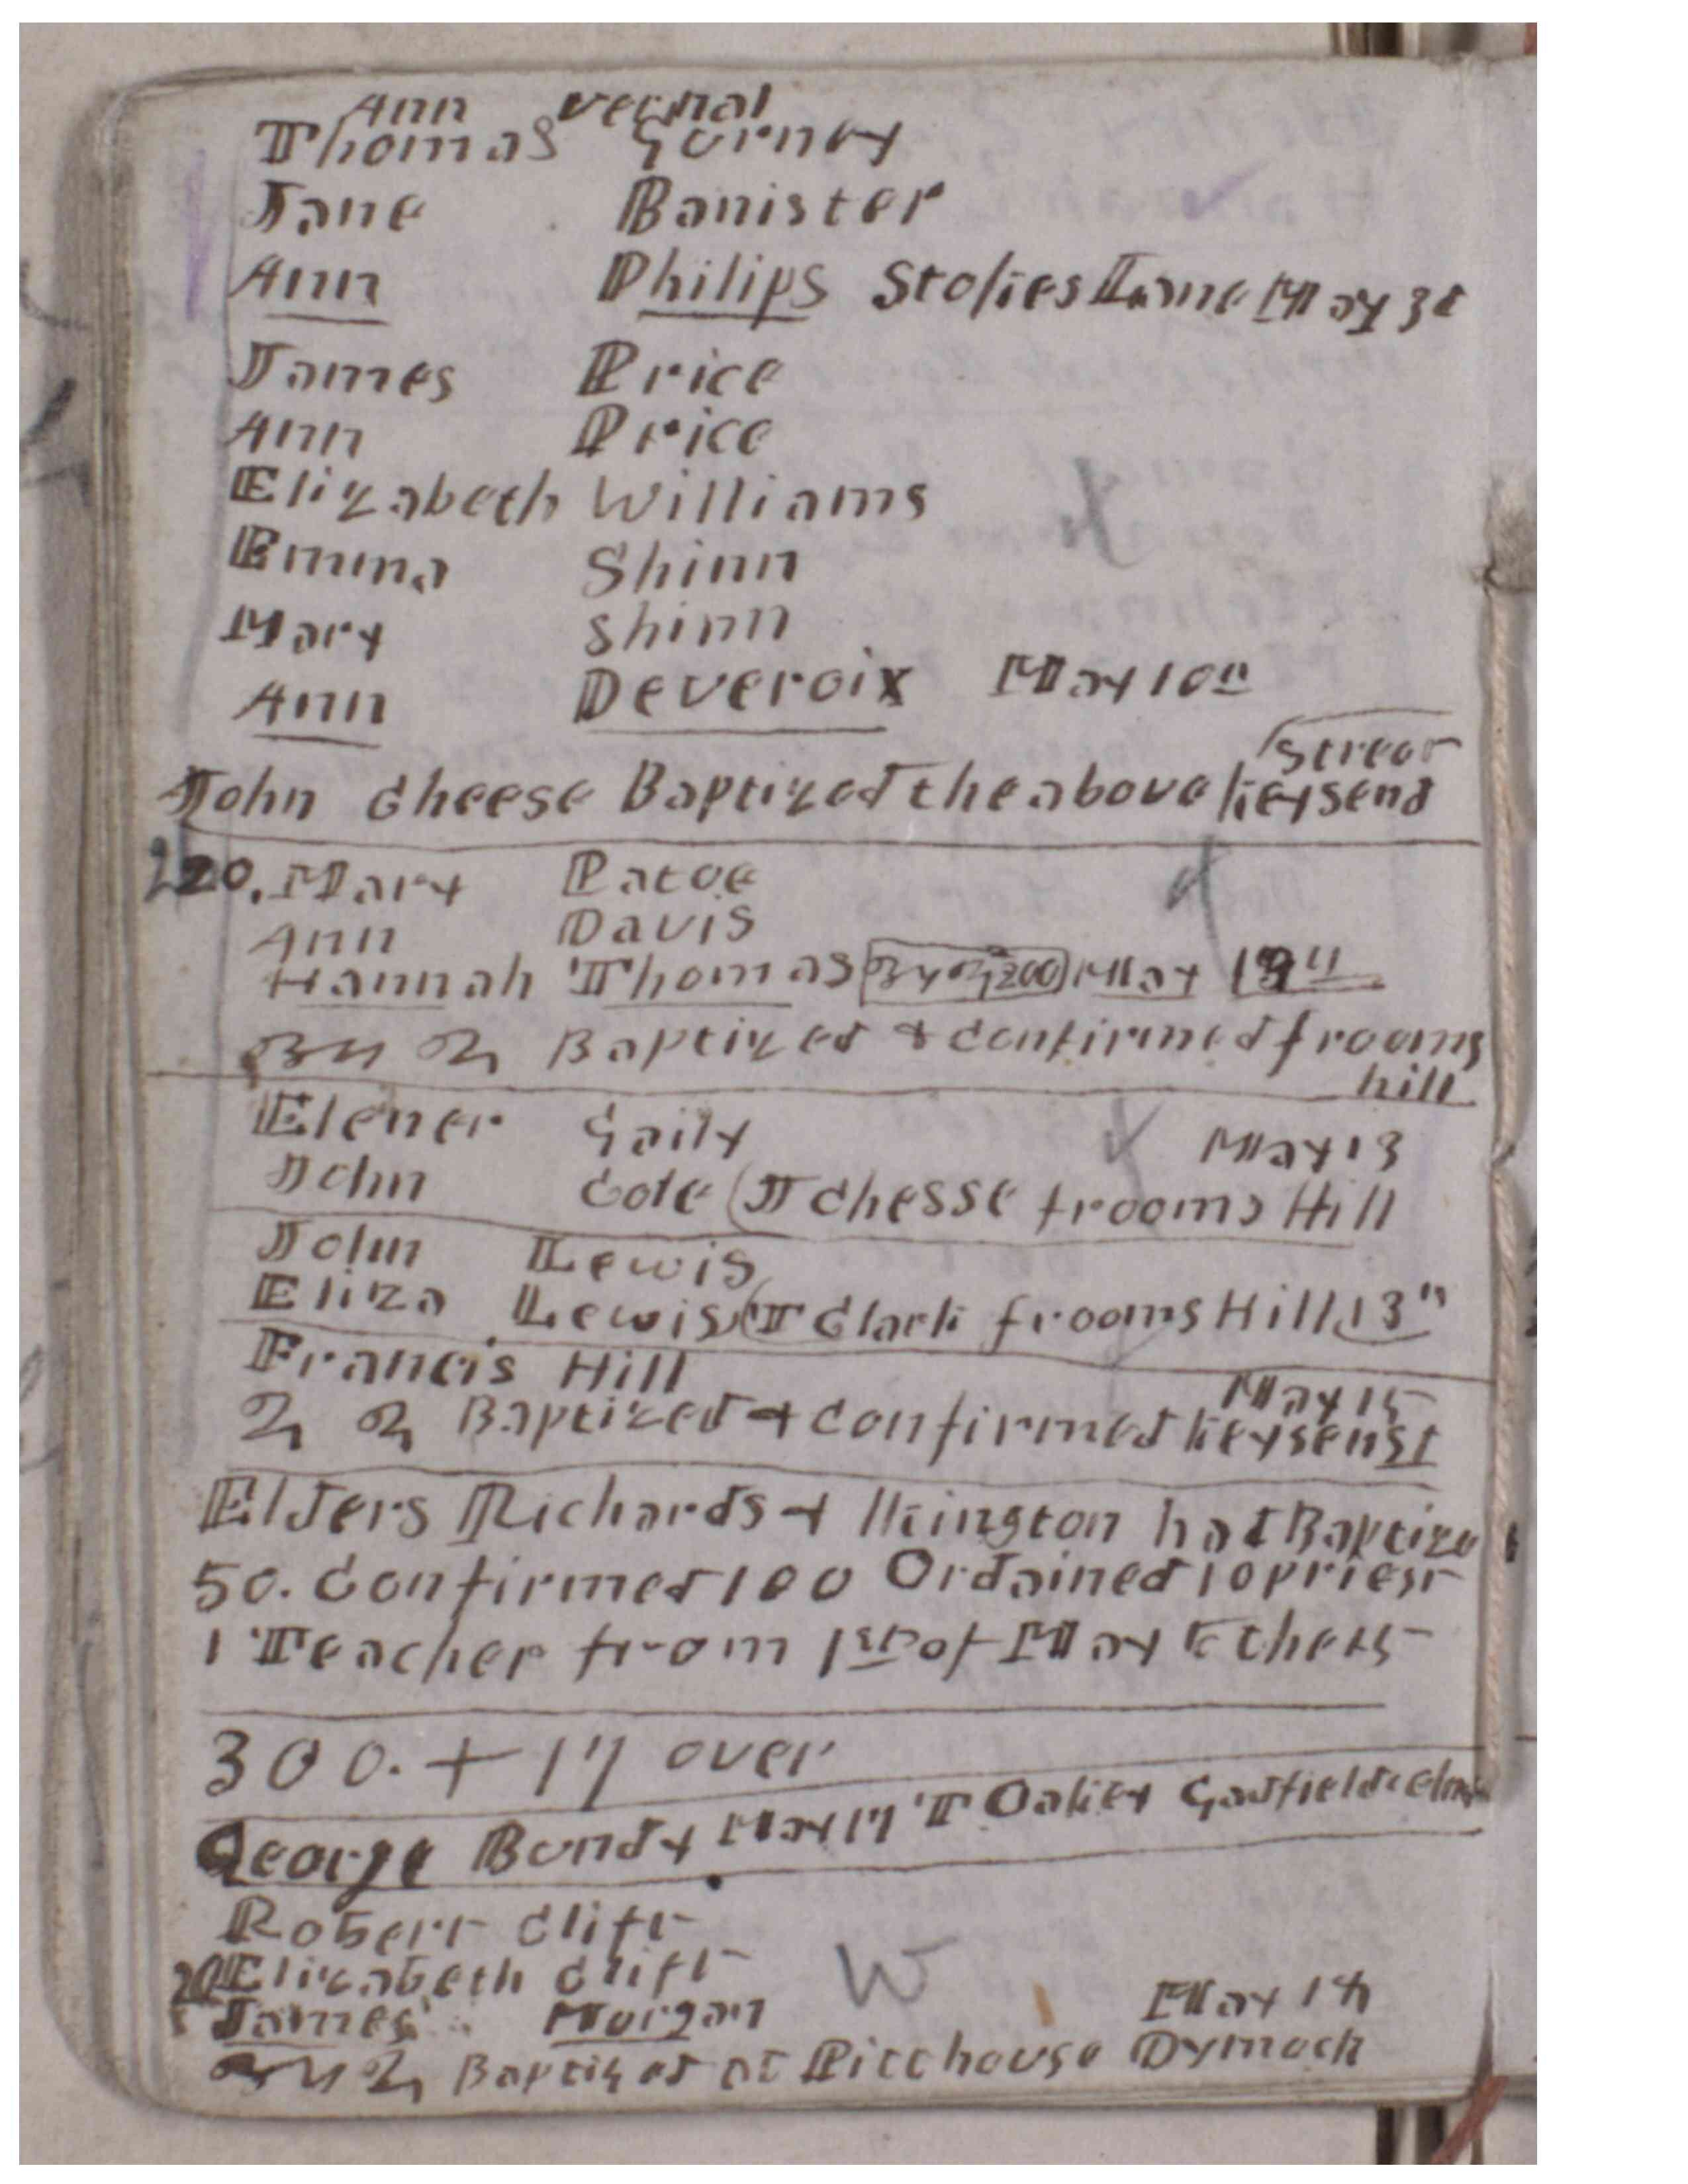 Ann Vernal
Thomas Gurney
Jane Banister
Ann Philips Stokes Lane May 3d
James Price
Ann Price
Elizabeth Williams
Emma Shinn
Mary Shinn
Ann Deveroix May 10"
Street
John Cheese Baptized the above Keysend
220. Mary Patoe
Ann Davis
Hannah Thomas 200 May 13"
Baptized & Confirmed frooms
hill
Elener Gaily May 13
John Cole (J Chesse frooms Hill
John Lewis
Eliza Lewis (T Clark frooms Hill 13"
Francis Hill
May 15
Baptized & Confirmed Keysenst
Elders Richards & Kington had Baptize
50. Confirmed 100 Ordained 10 priest
1 Teacher from 1st of May to the 15
300. + 17 over
George Bundy May 17 T Oakey Gadfield elm
Robert Clift
20 Elizabeth Clift W
James Morgan May 18
Baptized at Pitthouse Dymock